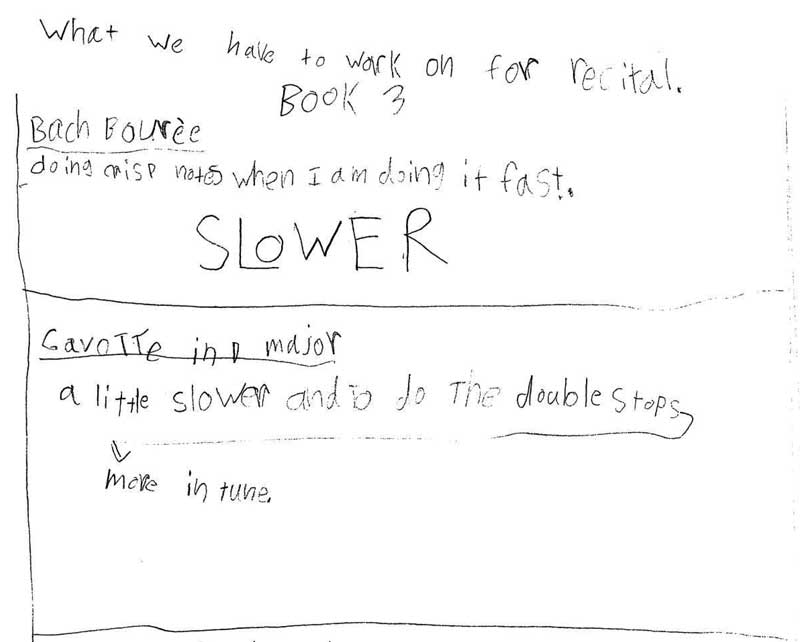 What we have to work on for recital.
BOOK 3
Bach Bourèe
doing crisp notes when I am doing it fast.
SLOWER
Gavotte in D major
a little slower and to do The double stops
more in tune.